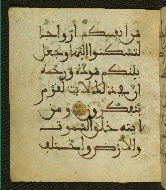 من انفسكم ازواجا
لتسكنوا اليها وجعل
بينكم مودة ورحمة
ان في ذلك لايت لقوم
يتفكرون ومن
ايته خلق السموت
والارض واختلف